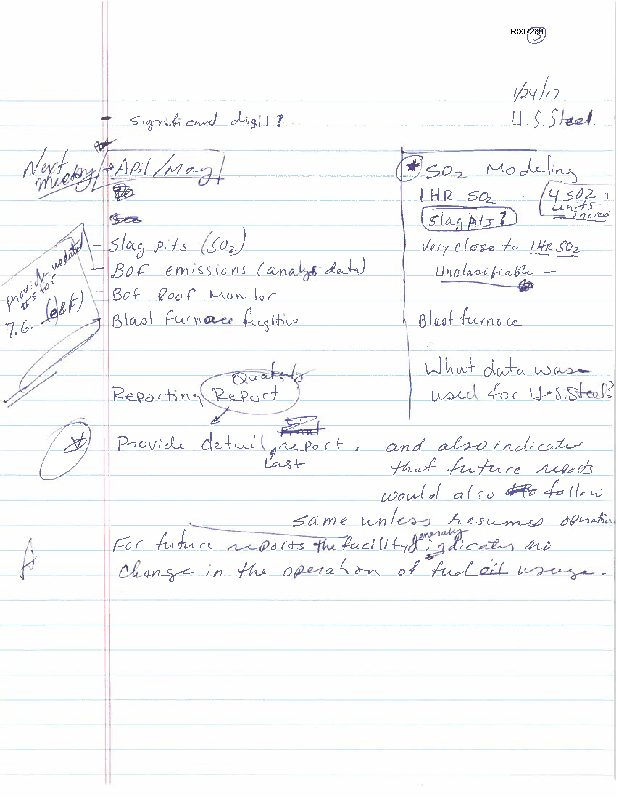 3
1/24/17
U.S. Steel
- Significant digit?
Next Meeting → April/May
- Slag pits (SO2)
- BOF emissions (analys data)
- BOF Roof Monitor
- Blast Furnace fugitive
Provide updated
7.G. (e&F)
* SO2 Modeling
1 HR SO2
4 SO2
units
Slag pits?
Very close to 1HR SO2
Unclassifiable -
Blast furnace
What data was
used for U.S. Steel?
Reporting Quarterly Report
* Provide detail report. and also indicate
Last
that future reports
would also follow
same unless resumes operation
For future reports the facility generally indicates no
change in the operation of fuel oil usage.